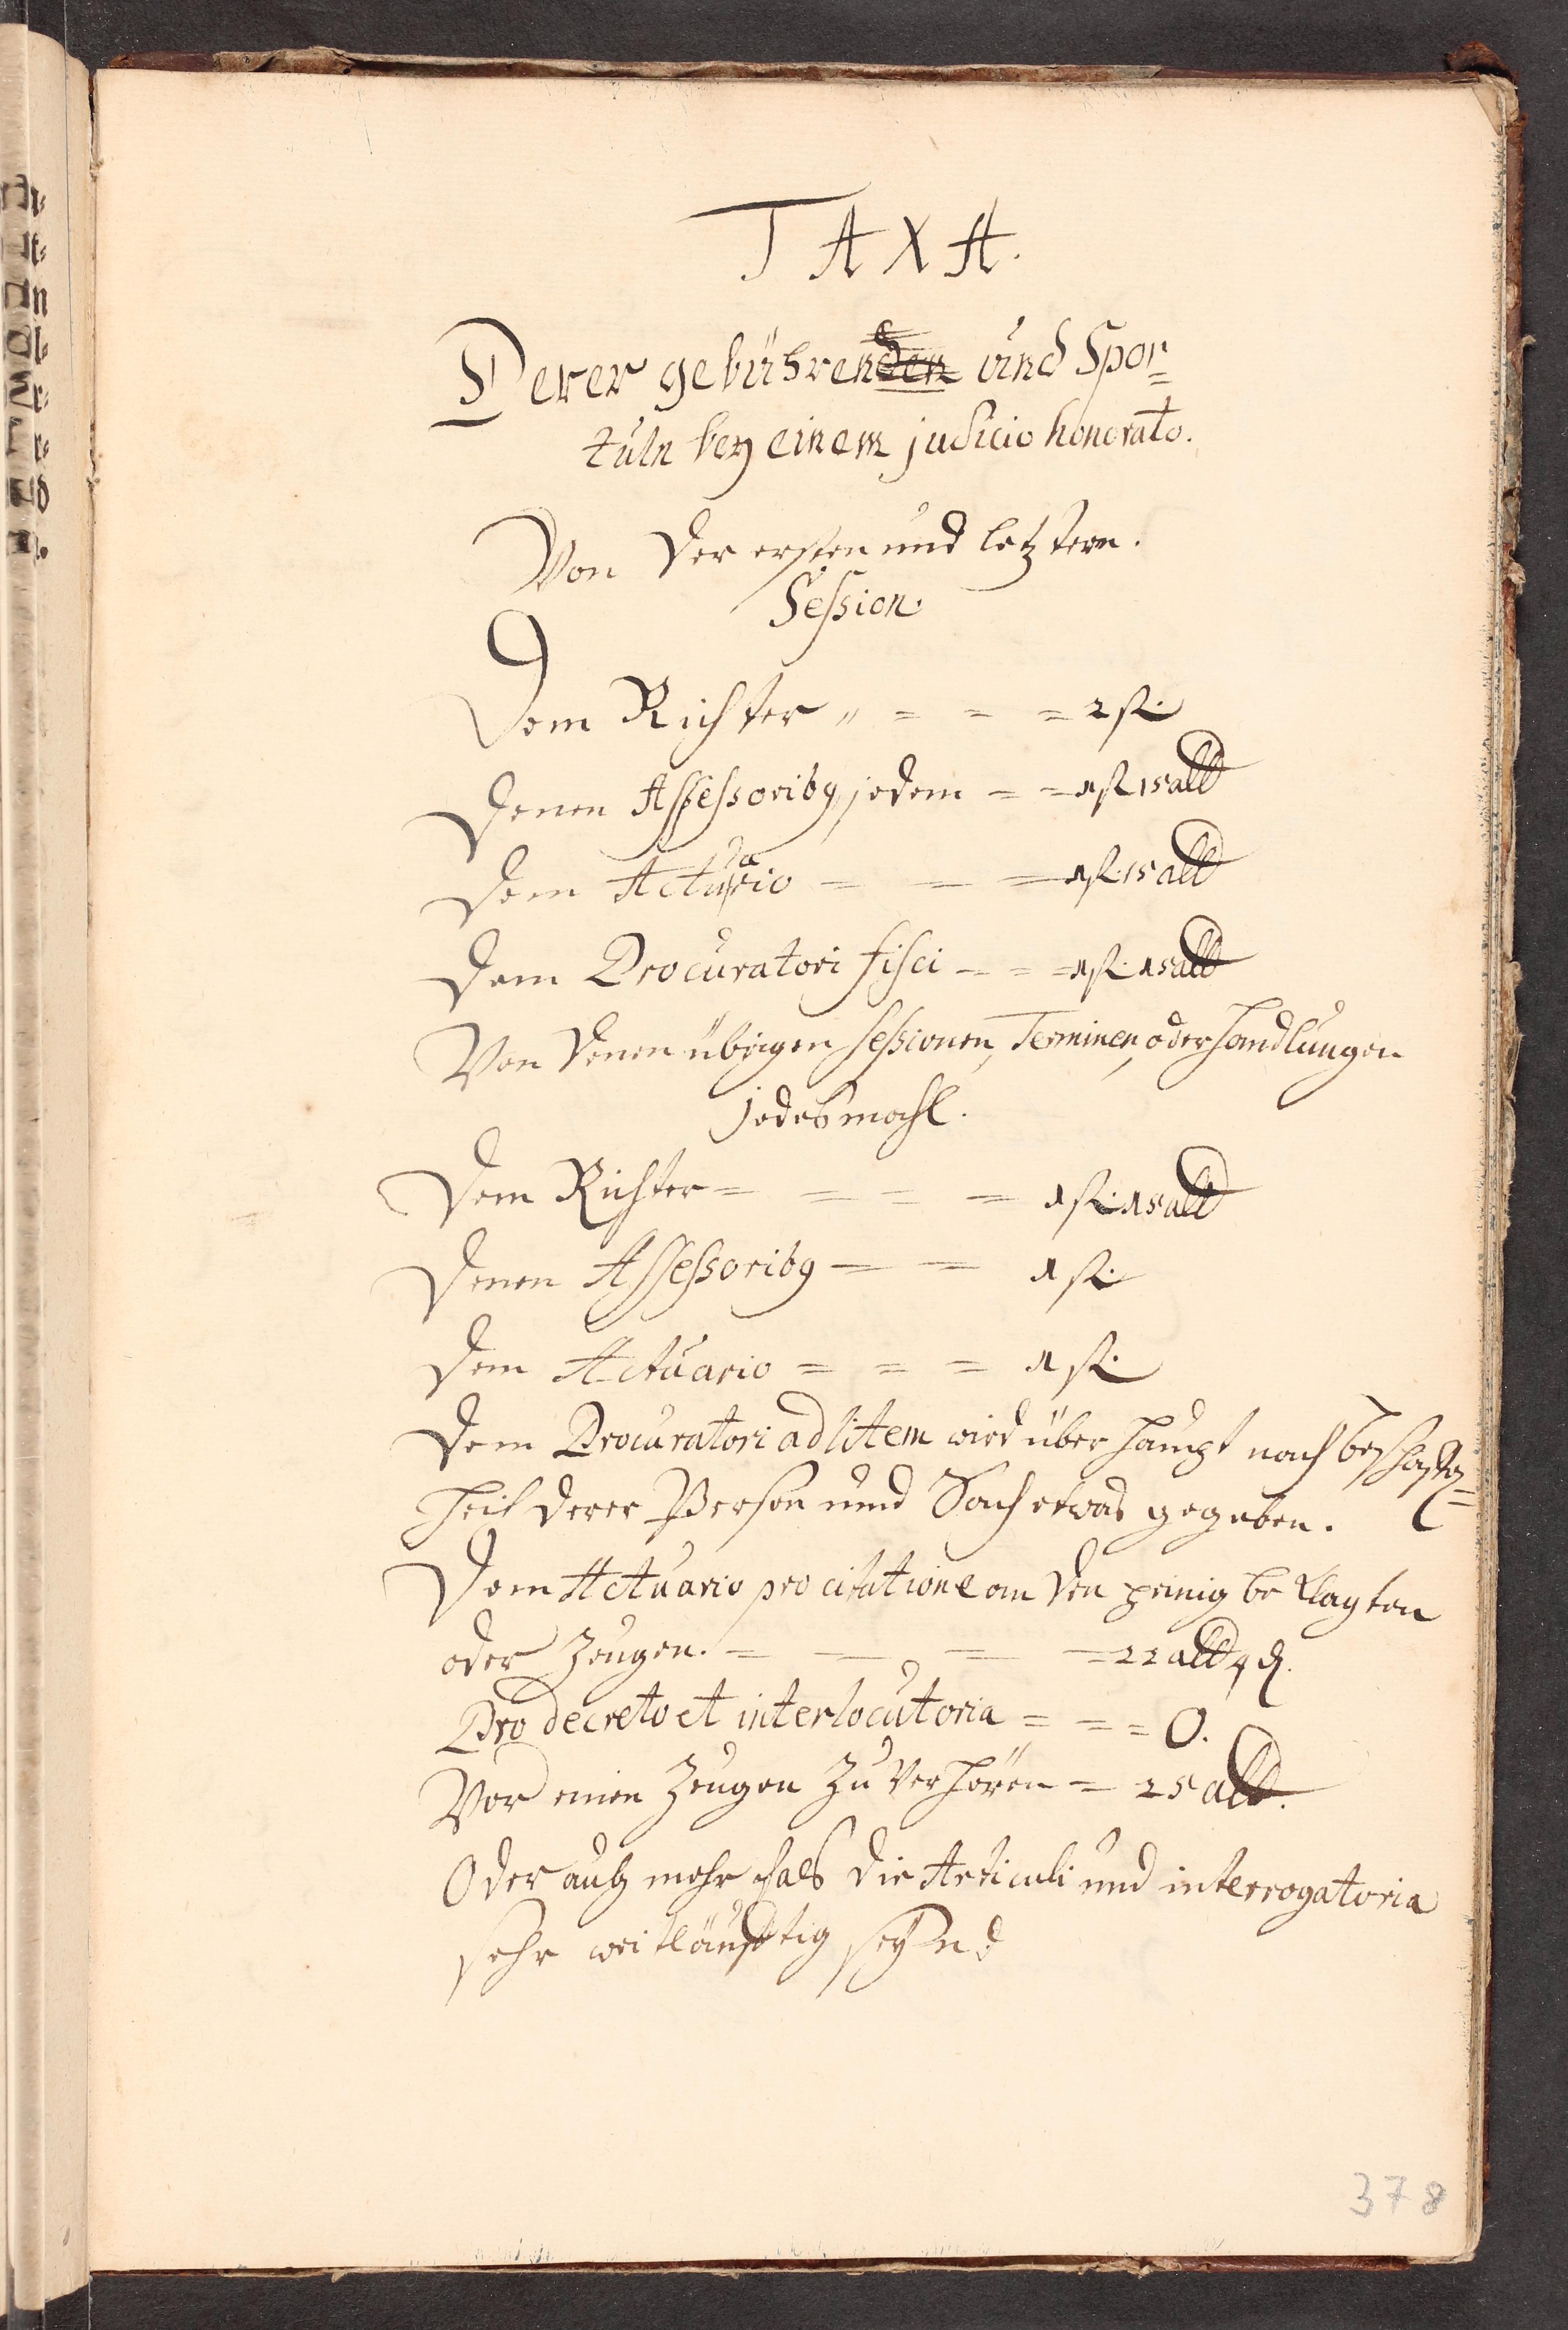 TAXA.
Derer gebührenden und Spor=
tuln bey einem judicio honorato.
Von der ersten und letztern.
Session.
Dem Richter „ = = = 2 fl.
Denen Assessoribus jedem = = 1 fl 15 alb
Dem Actuario = = = 1 fl. 15 alb
Dem Procuratori fisci = = = 1 fl. 15 alb
Von denen übrigen Sessionen, Terminen, oder Handlungen
jedesmahl.
Dem Richter = = = = 1 fl. 15 alb
Denen Assessoribus = = 1 fl.
Dem Actuario = = = 1 fl.
Dem Procuratori ad litem wird über haupt nach
heit derer Person und Sach etwas gegeben.
Dem Actuario pro citatione an den peinig beklagten
oder Zeugen. = = = = 22 alb 4 d.
Pro decreto et interlocutoria = = = 0.
Vor einen Zeugen zu verhören = 25 alb.
Oder auch mehr fals die Articuli und interrogatoria
sehr weitläufftig seynd
378